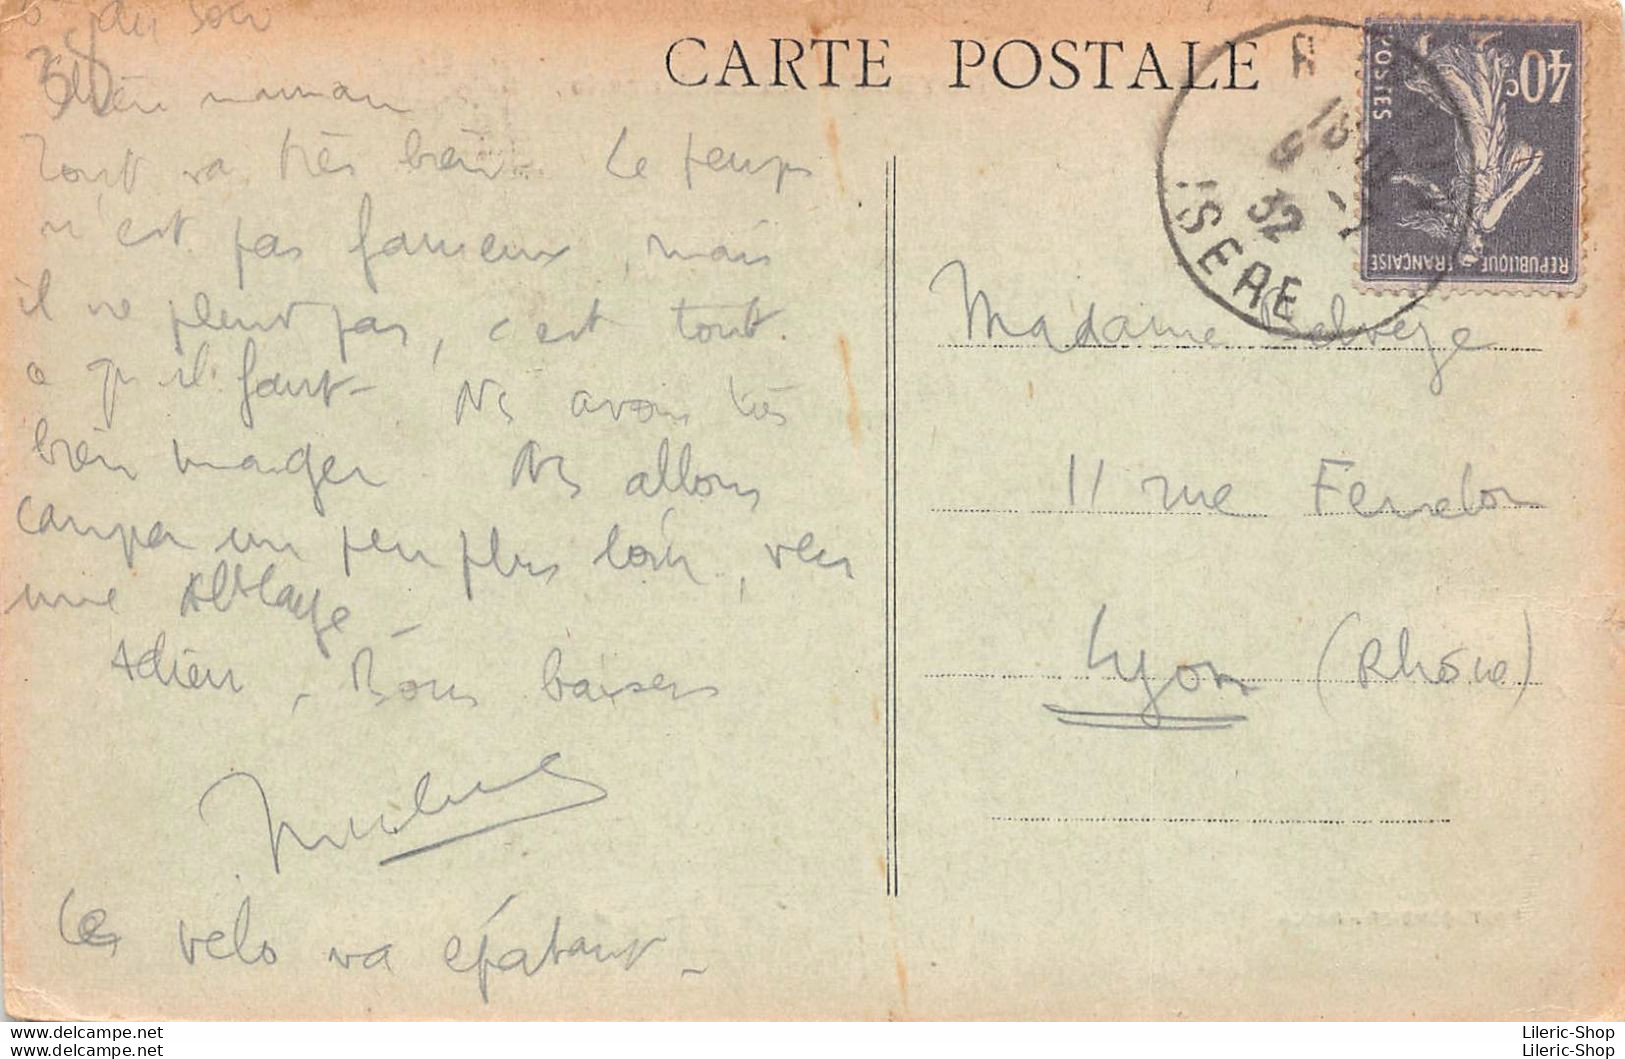 du soir
Chère maman
Tout va très bien. Le temps
n'est pas fameux, mais
il ne pleut pas, c'est tout
qu'il faut - Ns avons très
bien manger. Ns allons
camper un peu plus loin, vers
une Abbaye
Adieu, Bons baisers
Le vélo va épatant -
CARTE POSTALE
40c
POSTES
REPUBLIQUE FRANÇAISE
32
ISERE
Madame
11 rue Fenelon
Lyon (Rhône)
www.delcampe.net
www.delcampe.net
Lileric-Shop
Lileric-Shop